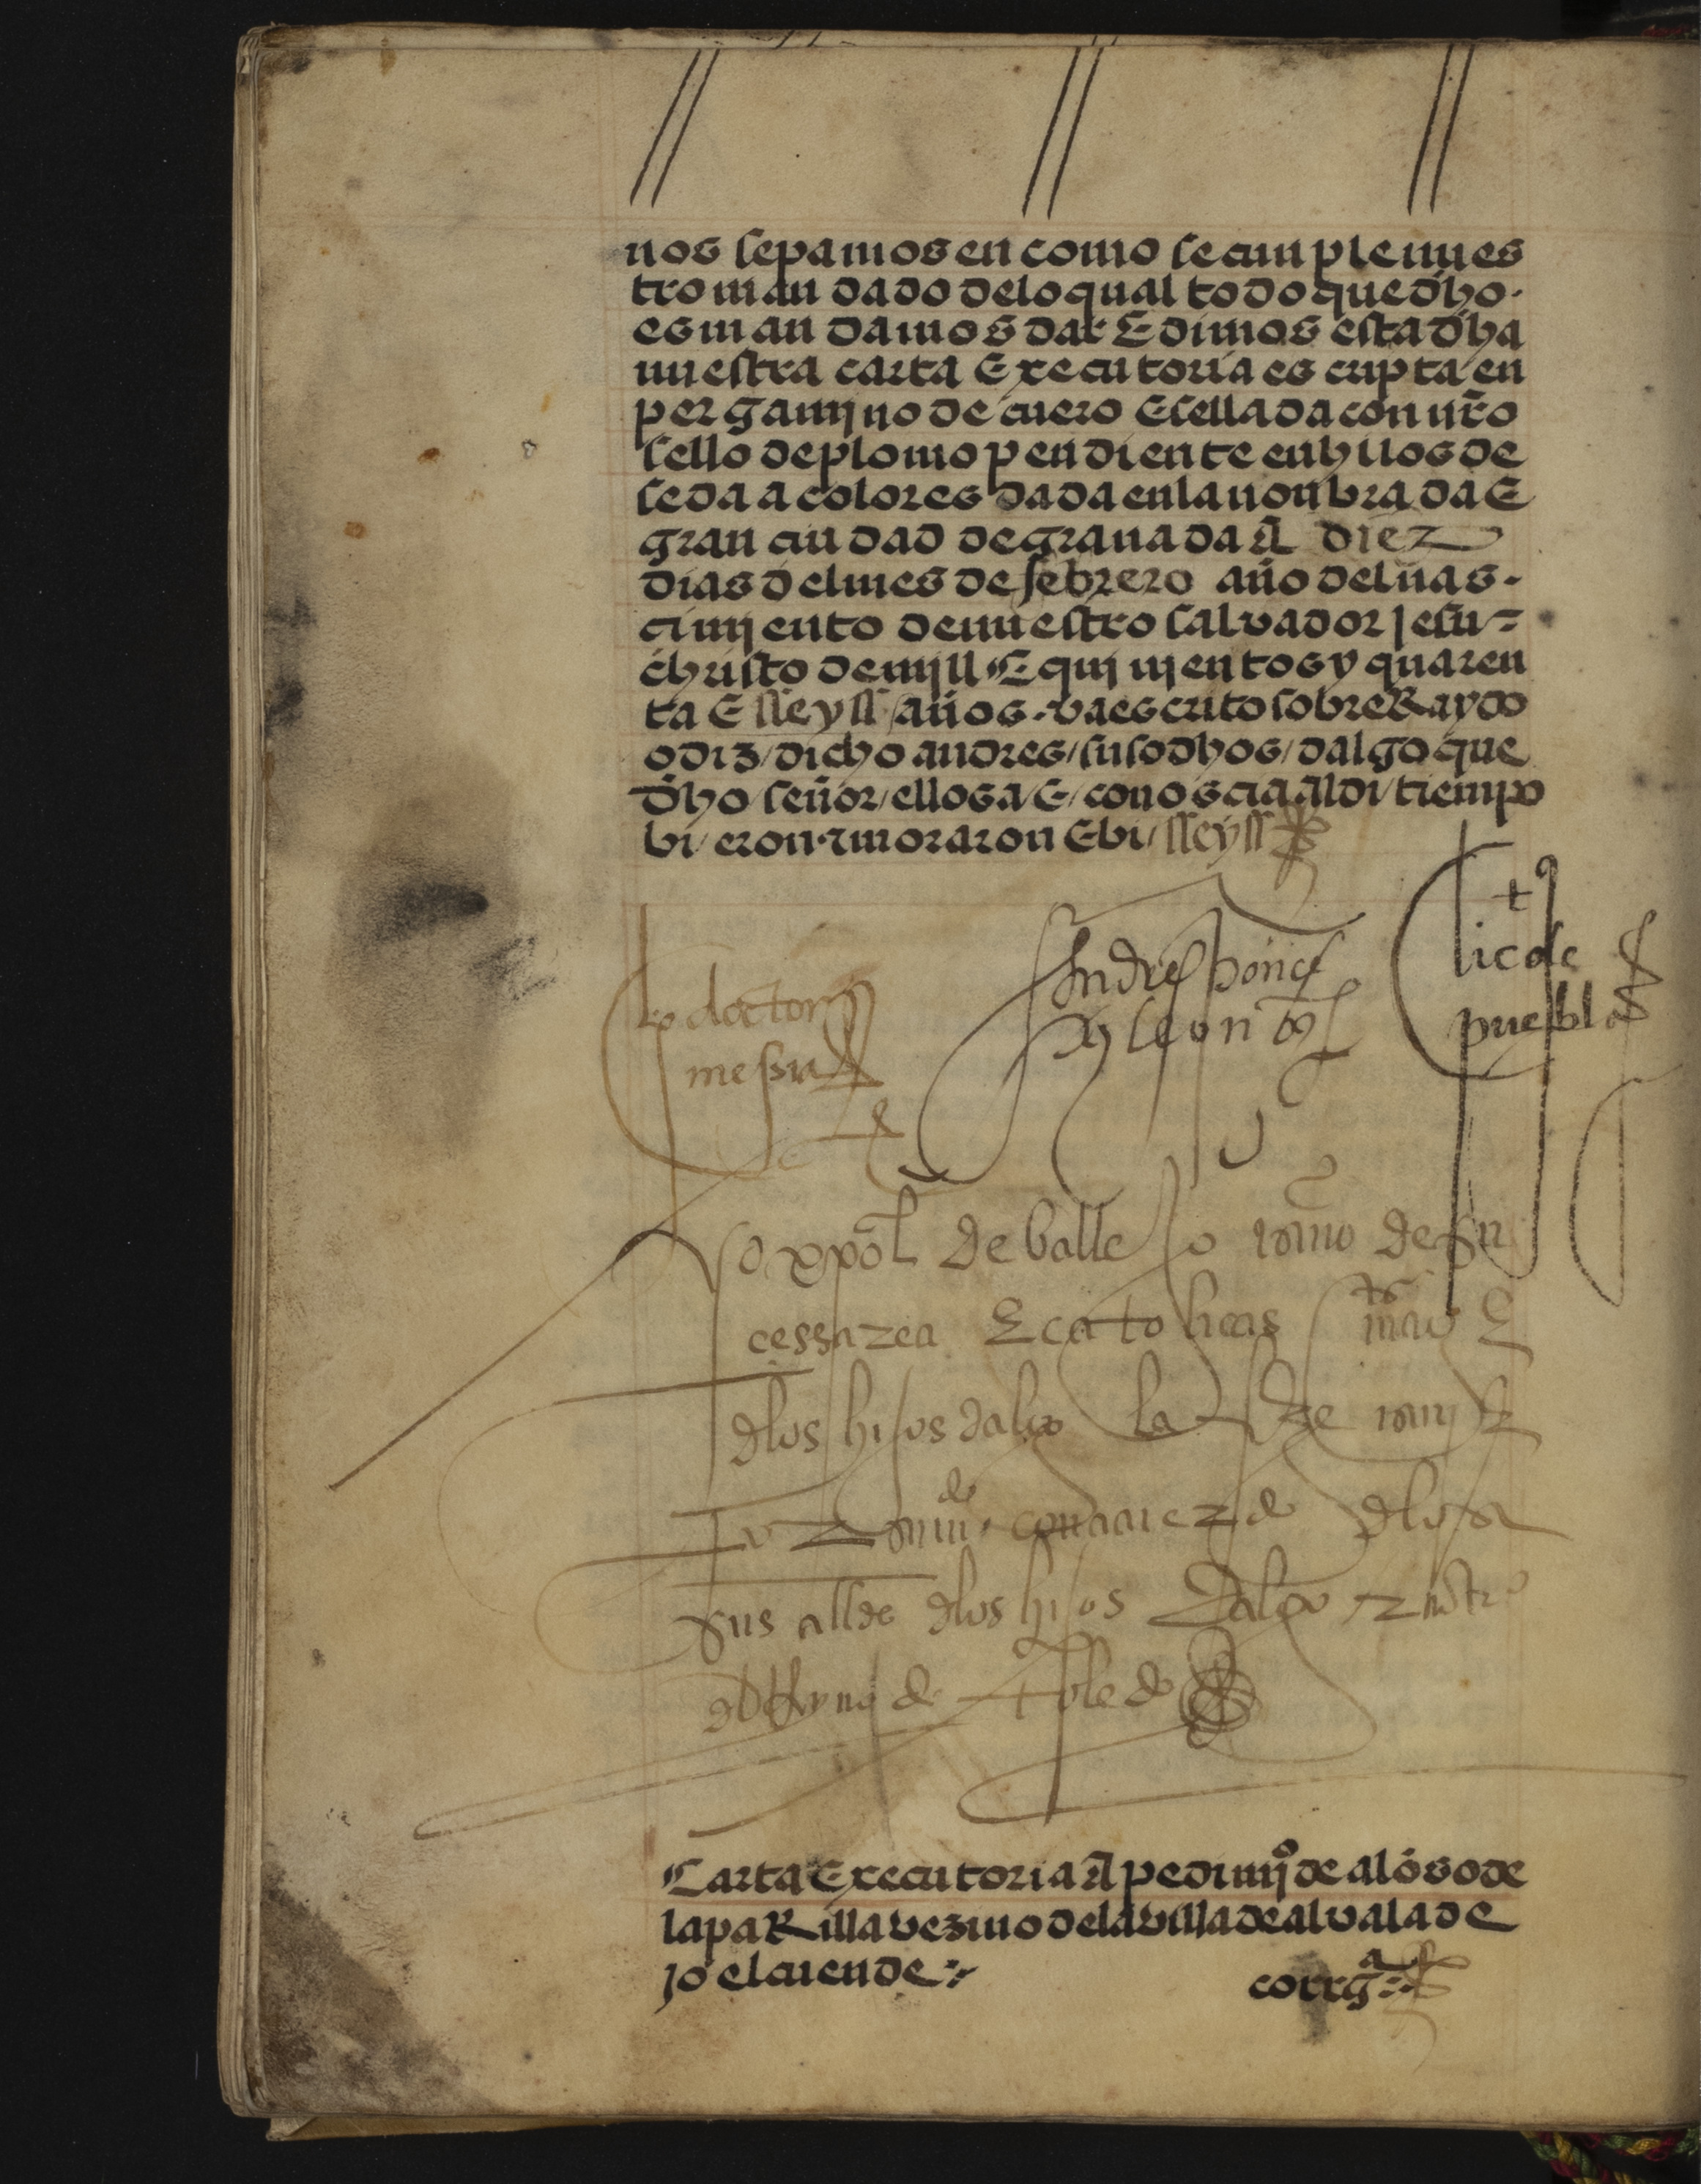 nos sepamos en como se cunple nues
tro mandado delo qual todo que dho.
es mandamos dar E dimos esta dha
nuestra carta Executoria es cripta en
pergamjno de cuero E sellada con nro
sello de plomo pendiente en hilos de
seda a colores dada enla nonbrada E
gran ciudad de granada A diez
dias del mes de febrero año del nas-
cimjento de nuestro salvador jesu=
christo de mjll E qujnjentos y quaren
ta E sseyss años. va escrito sobre Raydo
o diz / dicho andres / susodhos / dalgo que
dho / señor / ellos a / E / conoscia al di / tienpo
bi / eron. z moraron E bi / sseyss
El doctor
messia
Andres ponce
de leon
licdo
puebla
yo xpoal de balle so de su
cessarea E catolicas mas E
dlos hijos dalgo la
dlos
sus allde dlos hijos dalgo
del Reyno de toledo
Carta Executoria A pedimjo de alonso de
la paRilla vezino dela villa de alvalade
jo el cuende :~
corrga